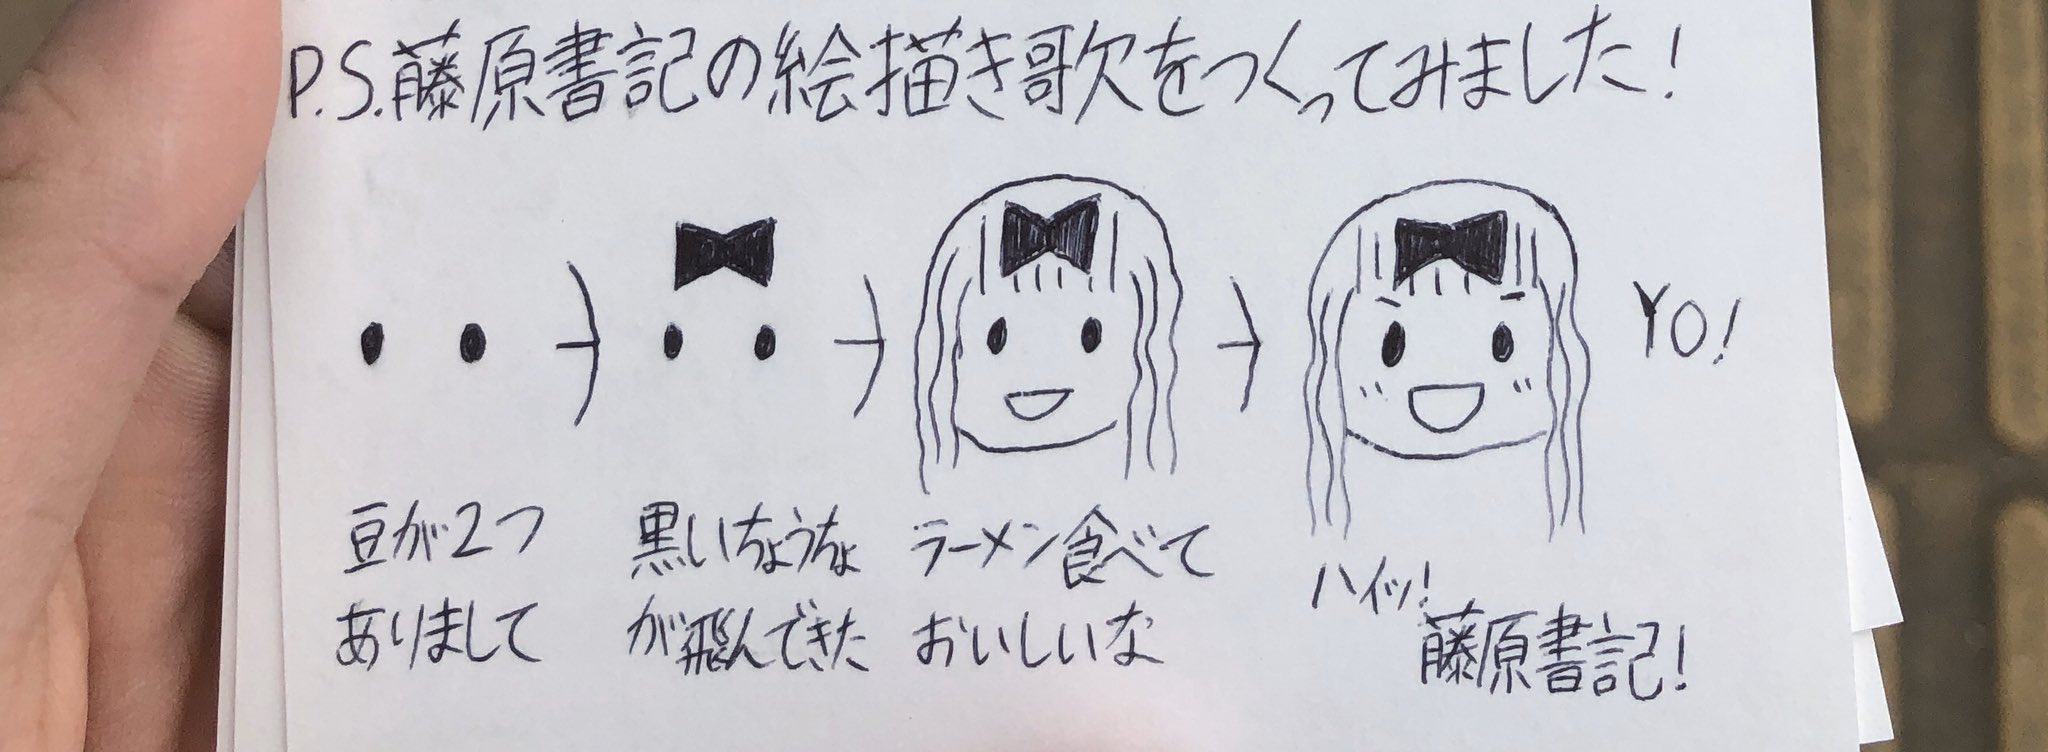 P.S.藤原書記の絵描き歌をつくってみました!
YO!
豆が2つ
ありまして
黒いちょうちょ
が飛んできた
ラーメン食べて
おいしいな
ハイッ!
藤原書記!